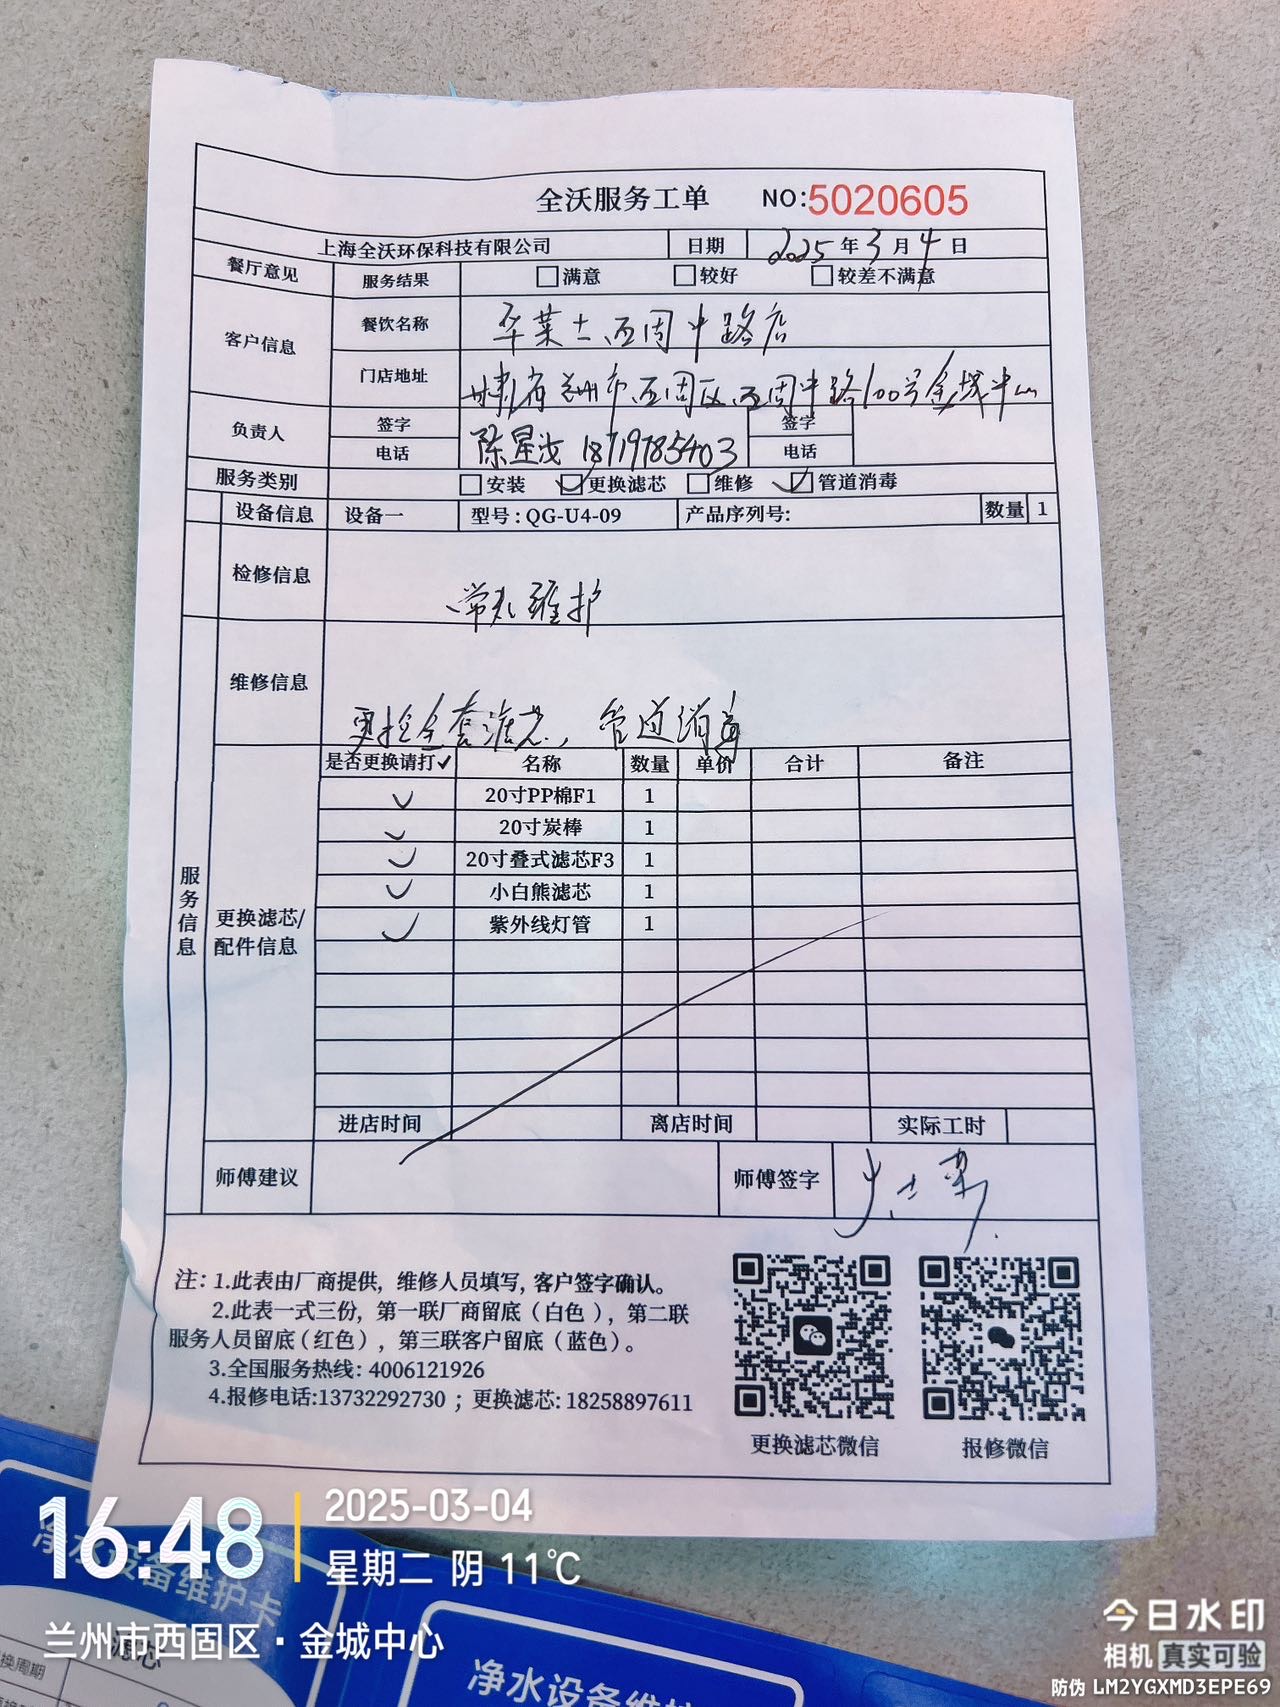 全沃服务工单 NO:5020605
上海全沃环保科技有限公司 日期 2025年3月4日
餐厅意见 服务结果 □满意 □较好 □较差不满意
客户信息 餐饮名称 华莱士西固中路店
门店地址 甘肃省兰州市西固区西固中路100号金城中心
负责人 签字 陈星 签字
电话 18719785403 电话
服务类别 □安装 ☑更换滤芯 □维修 ☑管道消毒
设备信息 设备一 型号:QG-U4-09 产品序列号: 数量 1
检修信息 常规维护
维修信息 更换全套滤芯、管道消毒
服务信息
更换滤芯/配件信息
是否更换请打✓ 名称 数量 单价 合计 备注
✓ 20寸PP棉F1 1
✓ 20寸炭棒 1
✓ 20寸叠式滤芯F3 1
✓ 小白熊滤芯 1
✓ 紫外线灯管 1
进店时间 离店时间 实际工时
师傅建议 师傅签字
注: 1.此表由厂商提供, 维修人员填写, 客户签字确认。
2.此表一式三份, 第一联厂商留底(白色), 第二联
服务人员留底(红色), 第三联客户留底(蓝色)。
3.全国服务热线: 4006121926
4.报修电话:13732292730 ; 更换滤芯: 18258897611
更换滤芯微信 报修微信
16:48 2025-03-04
星期二 阴 11℃
兰州市西固区·金城中心
净水设备维护卡
滤芯
换周期
净水设备维护
今日水印
相机 真实可验
防伪 LM2YGXMD3EPE69